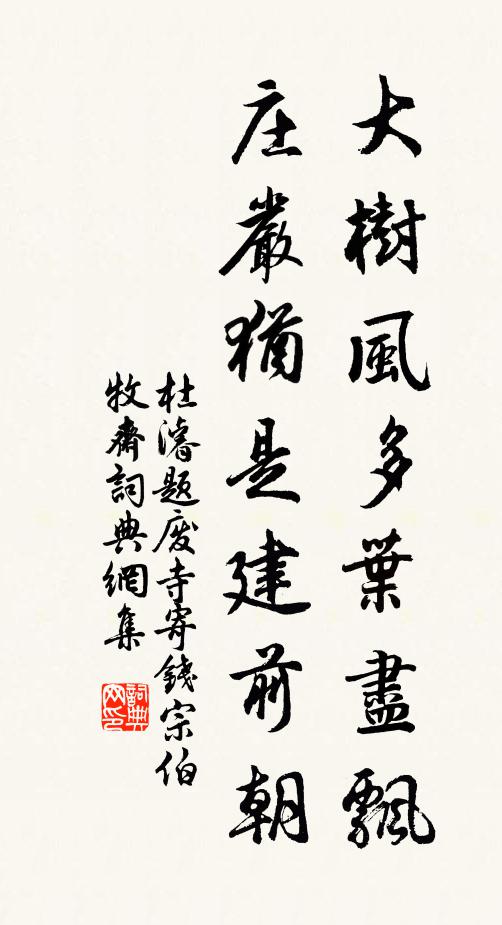 大樹風多葉盡飄
庄嚴猶是建前朝
杜濬題废寺寄錢宗伯
牧齋詞典網集
詞典网印